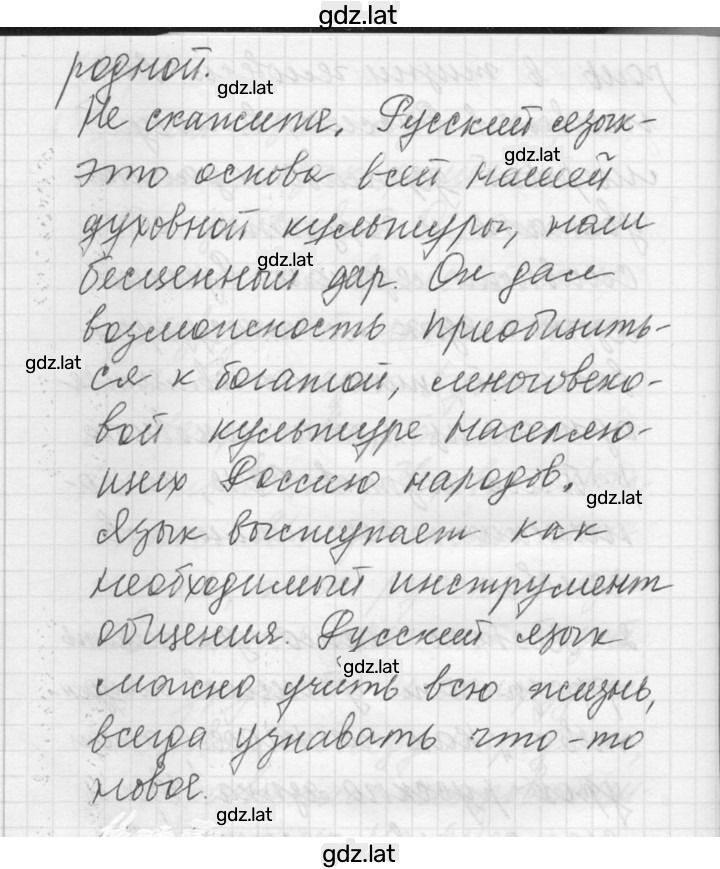 gdz.lat
родной.
gdz.lat
Не скажите. Русский язык-
gdz.lat
это основа всей нашей
духовной культуры, наш
gdz.lat
бесценный дар. Он дал
возможность приобщить-
gdz.lat
ся к богатой, многовеко-
вой культуре населяю-
щих Россию народов.
gdz.lat
Язык выступает как
необходимый инструмент
общения. Русский язык
gdz.lat
можно учить всю жизнь,
всегда узнавать что-то
новое.
gdz.lat
gdz.lat